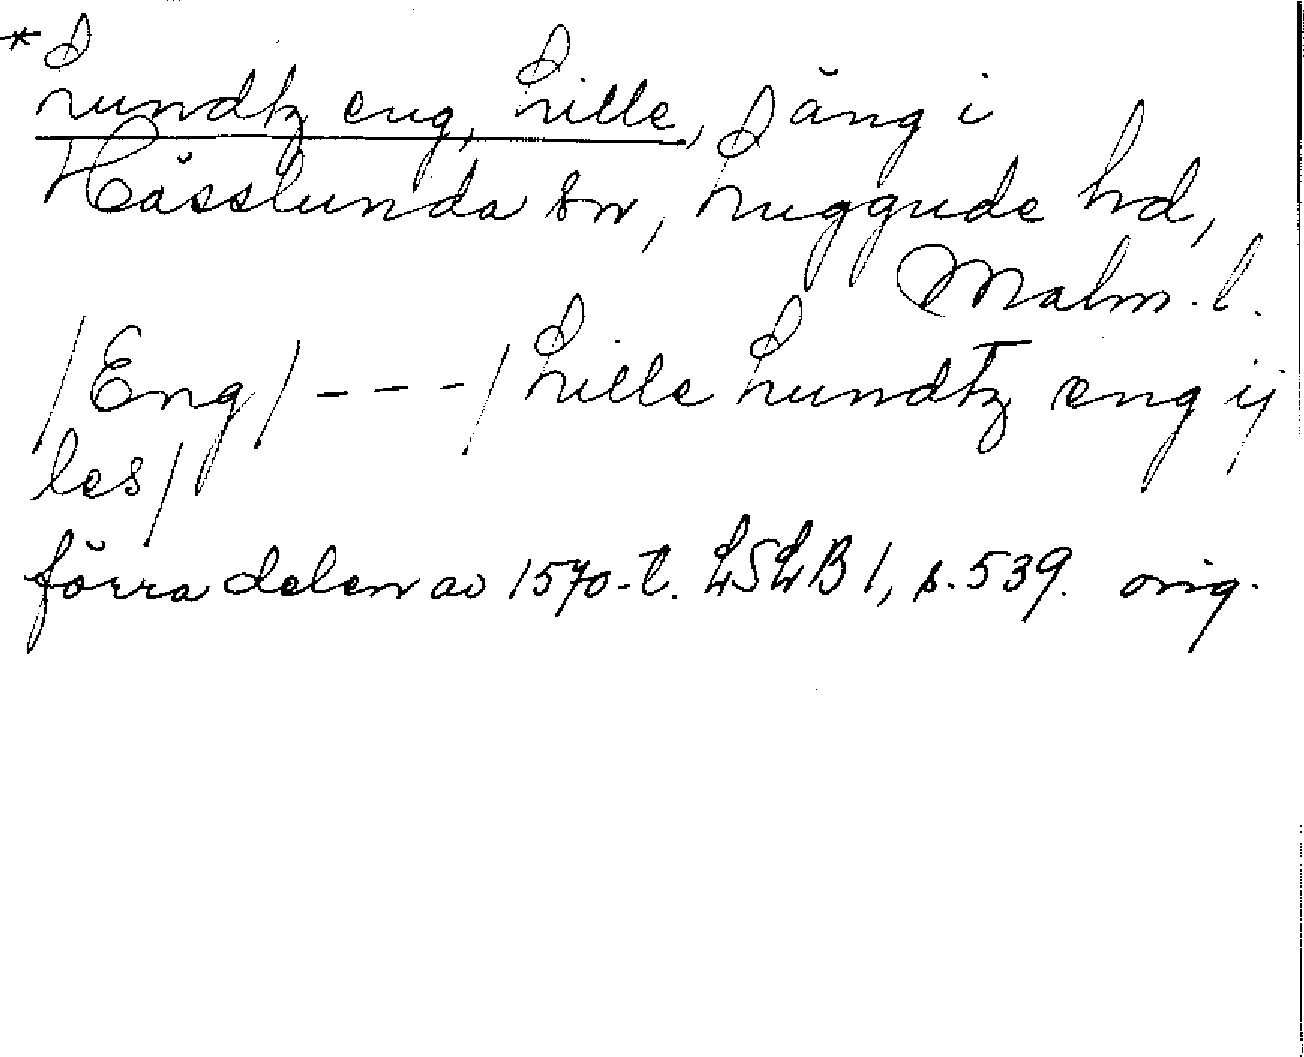 *Lundtz eng, Lille, äng i
Hässlunda sn, Luggude hd,
Malm. l.
/Eng/ - - - / Lille Lundtz eng ij
les/
förra delen av 1570-t. LSLB 1, s. 539. orig.